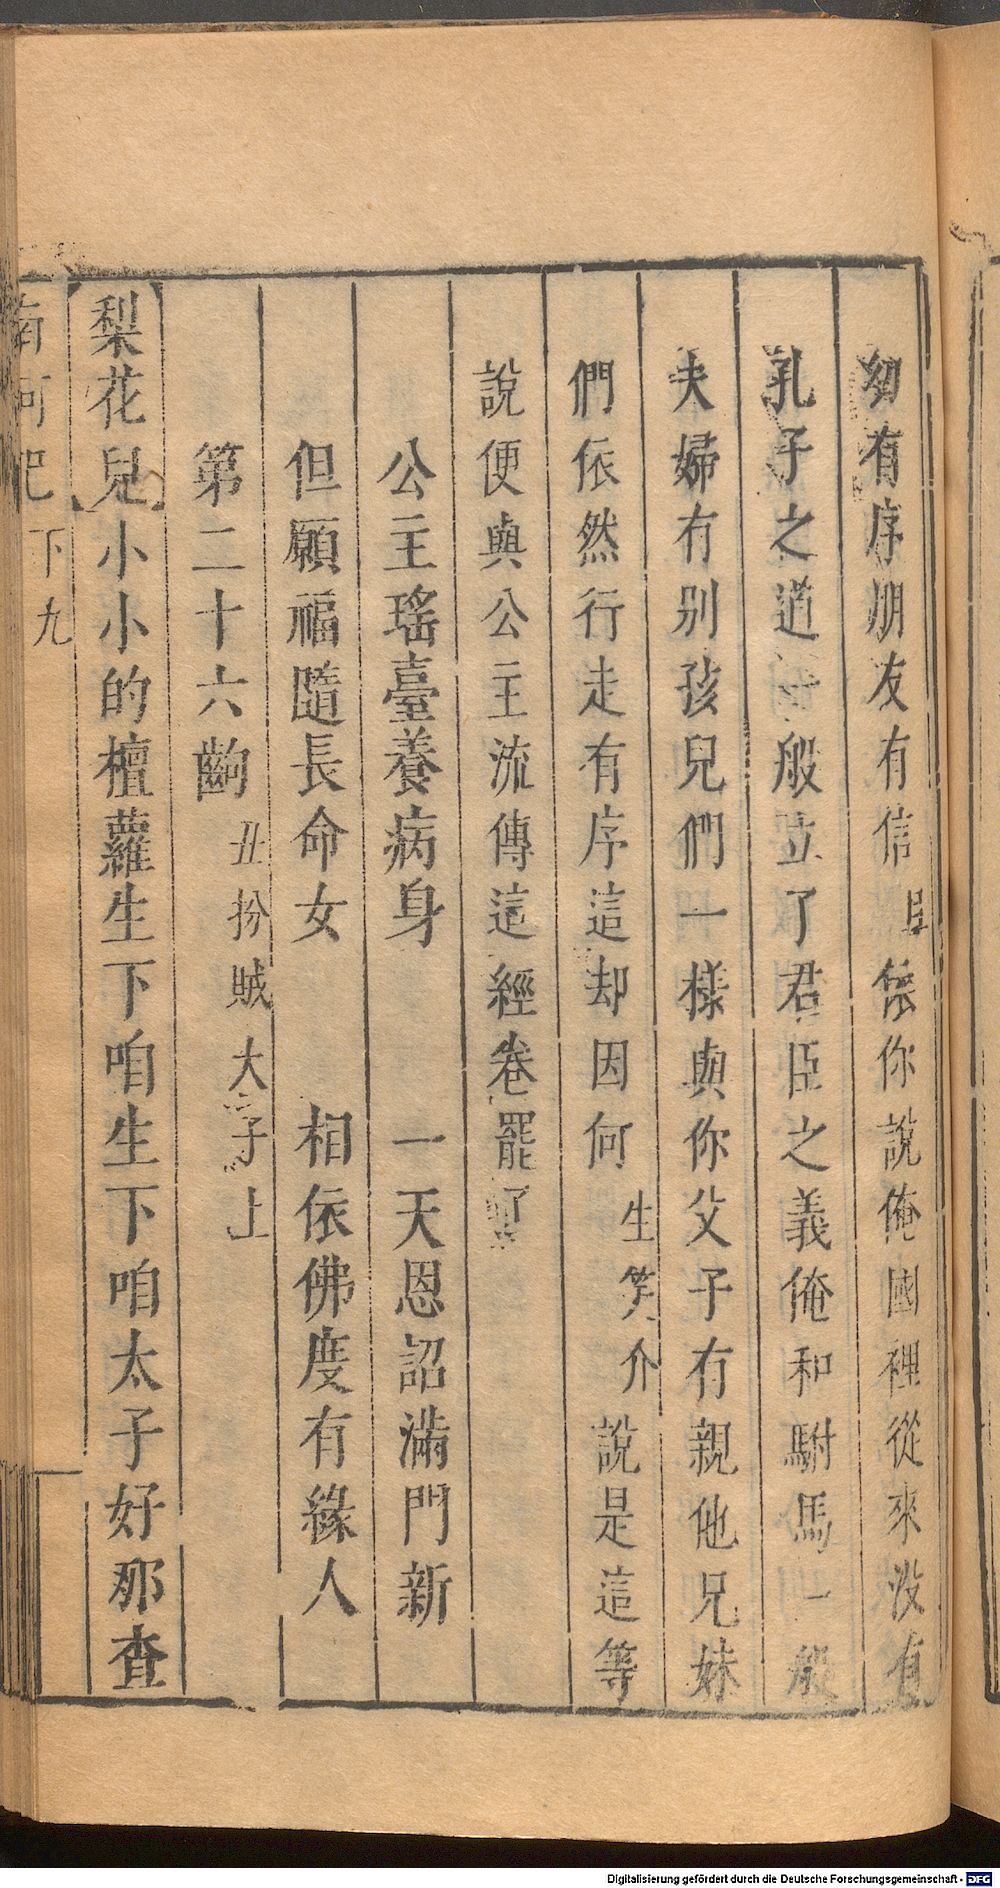 幼有序朋友有信旦恁你說俺國裡從來沒有
孔子之道一般立了君臣之義俺和駙馬一般
夫婦有別孩兒們一樣與你父子有親他兄妹
們依然行走有序這却因何生笑介說是這等
說便與公主流傳這經卷罷了
公主瑤臺養病身 一天恩詔滿門新
但願福隨長命女 相依佛度有緣人
第二十六齣丑扮賊太子上
【梨花兒】小小的檀蘿生下咱生下咱太子好那査
南柯記 下 九
Digitalisierung gefördert durch die Deutsche Forschungsgemeinschaft - DFG